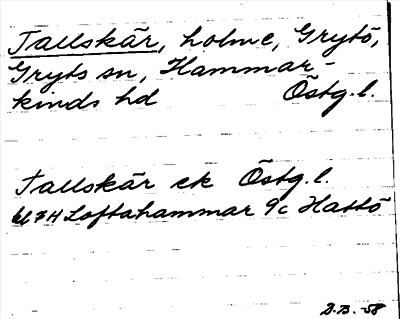 Tallskär, holme, Grytö,
Gryts sn, Hammar-
kinds hd Östg.l.
Tallskär ek Östg.l.
bl 7H Loftahammar 9c Hattö
D.B. -58